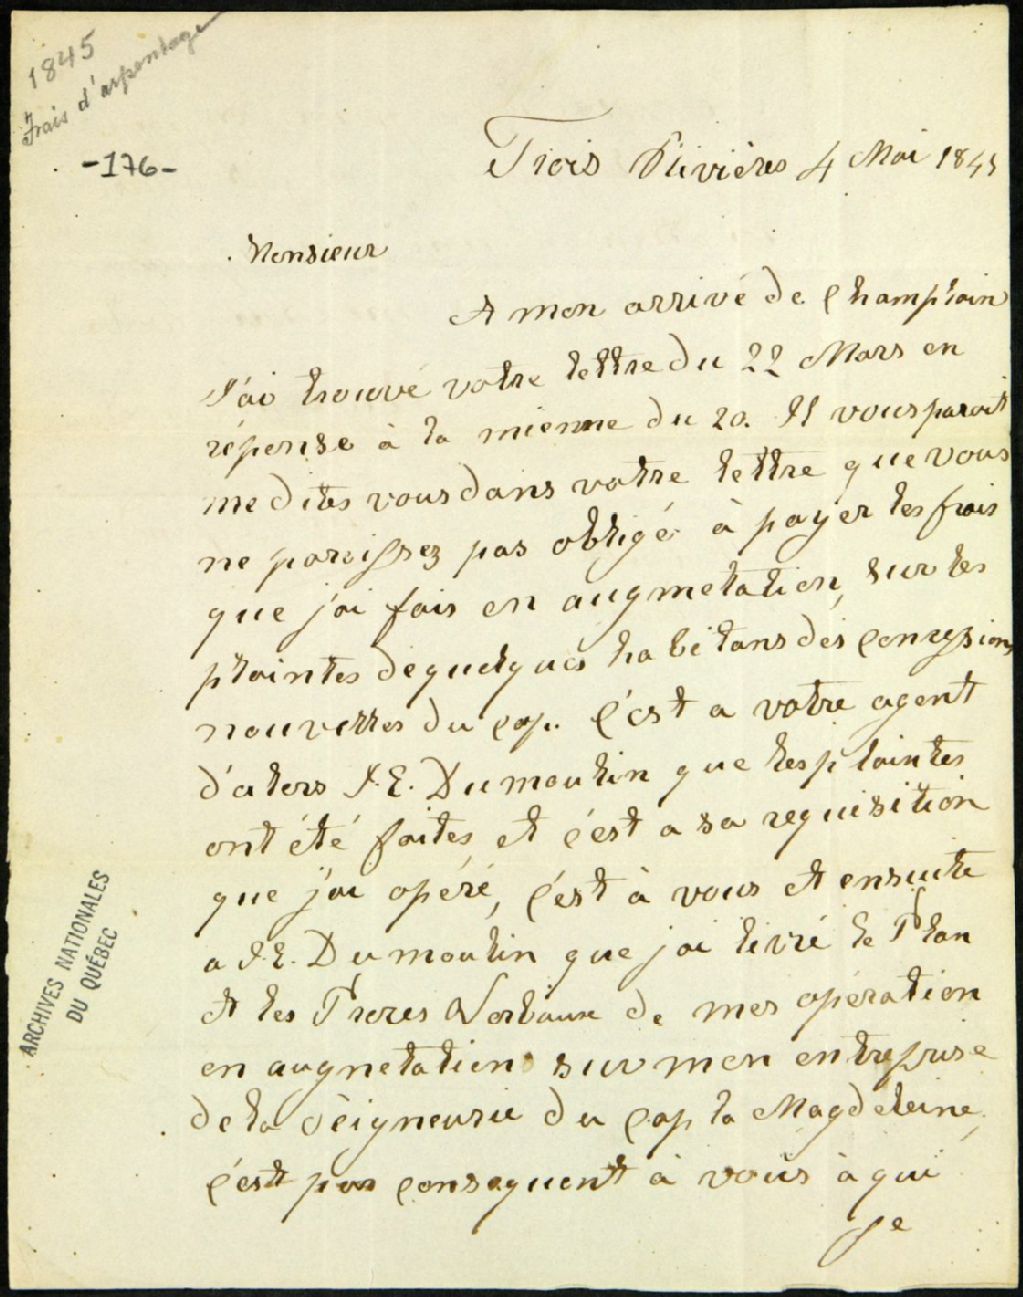 1845
Frais d'arpentage
-176-
Trois Rivières 4 Mai 1845
Monsieur
A mon arrivé de Champlain
J'ai trouvé votre lettre du 22 Mars en
réponse à la mienne du 20. Il vous paroit
me dites vous dans votre lettre que vous
ne paroissez pas obligé à payer les frais
que j'ai fais en augmetation, sur les
plaintes de quelques habitans des concession
nouvelles du Cap. C'est a votre agent
d'alors P.E. Dumoulin que les plaintes
ont été faites et c'est a sa requisition
que j'ai opéré, c'est à vous et ensuite
a P.E. Dumoulin que j'ai livré le Plan
et les Proces Verbaux de mes opération
en augnetation sur mon entreprise
de la Seigneurie du Cap la Magdeleine,
c'est par consequent à vous à qui
je
ARCHIVES NATIONALES
DU QUÉBEC